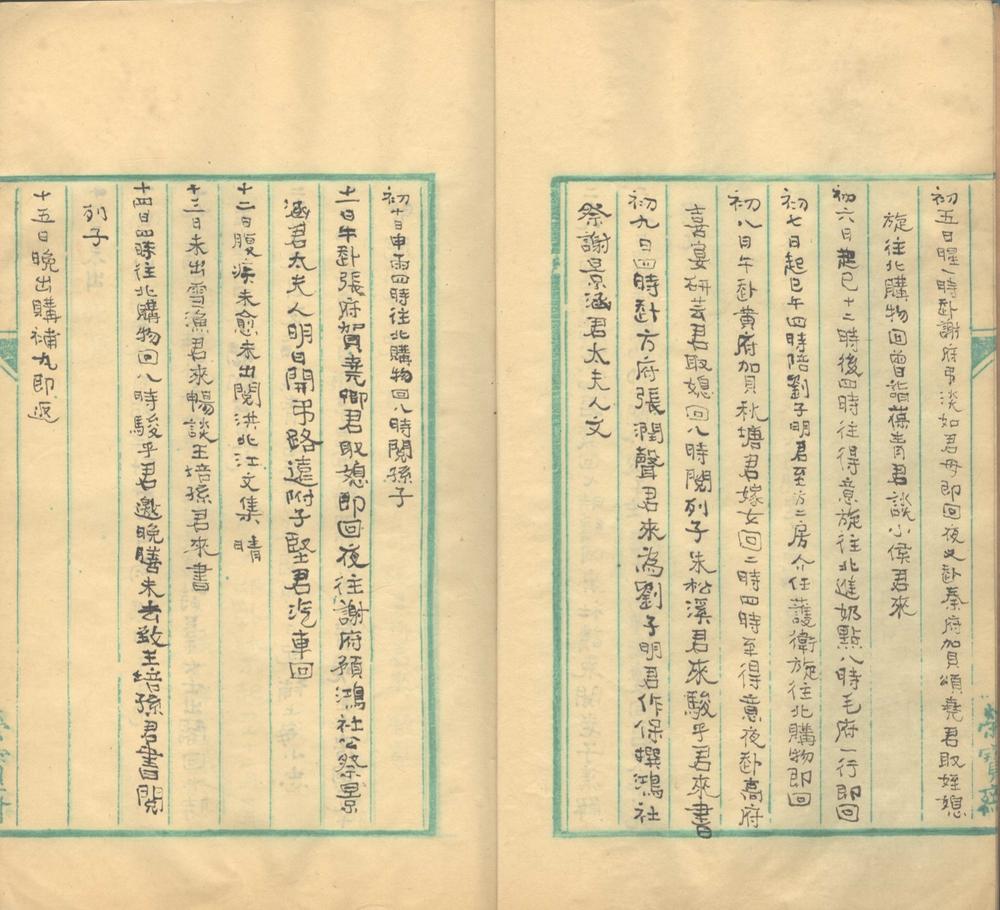 初五日腥一時赴謝府弔淡如君母即回夜又赴秦府加貝頌堯君取姪媳
旋往北購物回曾詣葆青君談小侯君來
初六日起已十二時後四時往得意旋往北進奶點八時毛府一行即回
初七日起已午四時陪劉子明君至方二房介任護衛旋往北購物即回
初八日午赴黄府加貝秋塘君嫁女回二時四時至得意夜赴高府
喜宴研芸君取媳回八時閱列子朱松溪君來駿乎君來書
初九日四時赴方府張潤聲君來為劉子明君作保撰鴻社
祭謝景涵君太夫人文
初十日申雨四時往北購物回八時閱孫子
十一日午赴張府賀堯卿君取媳即回夜往謝府預鴻社公祭景
涵君太夫人明日開弔路遠附子堅君汽車回
十二日腹疾未愈未出閱洪北江文集 晴
十三日未出雪漁君來暢談王培孫君來書
十四日四時往北購物回八時駿乎君邀晚膳未去致王培孫君書閱
列子
十五日晚出購補丸即返